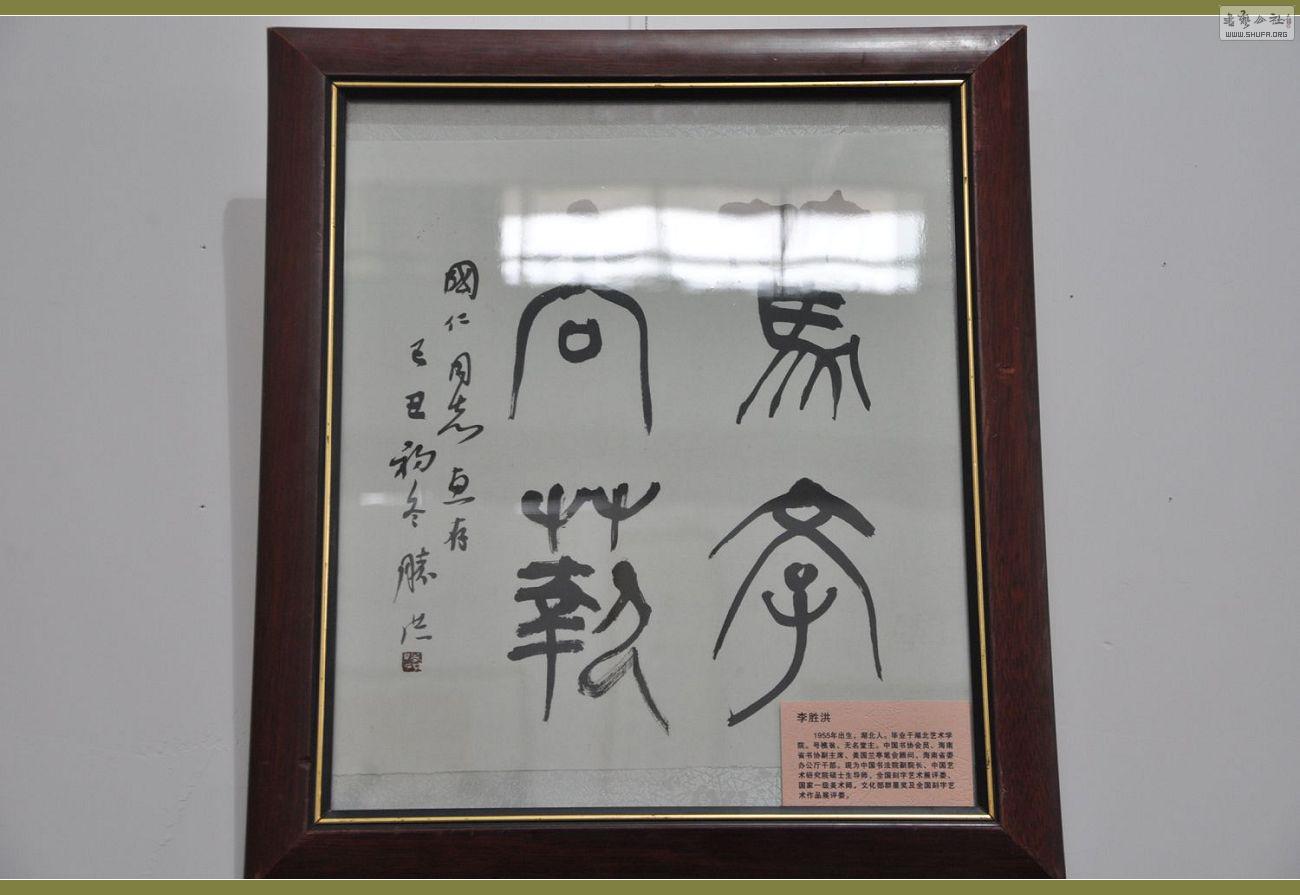 書藝公社
WWW.SHUFA.ORG
篤學
尚藝
國仁同志惠存
己丑初冬勝洪
李胜洪
1955年出生，湖北人。毕业于湖北艺术学
院。号，无名堂主。中国书协会员、海南
省书协副主席、美国兰亭笔会顾问、海南省委
办公厅干部。现为中国书法院副院长、中国艺
术研究院硕士生导师，全国刻字艺术展评委，
国家一级美术师。文化部群星奖及全国刻字艺
术作品展评委。